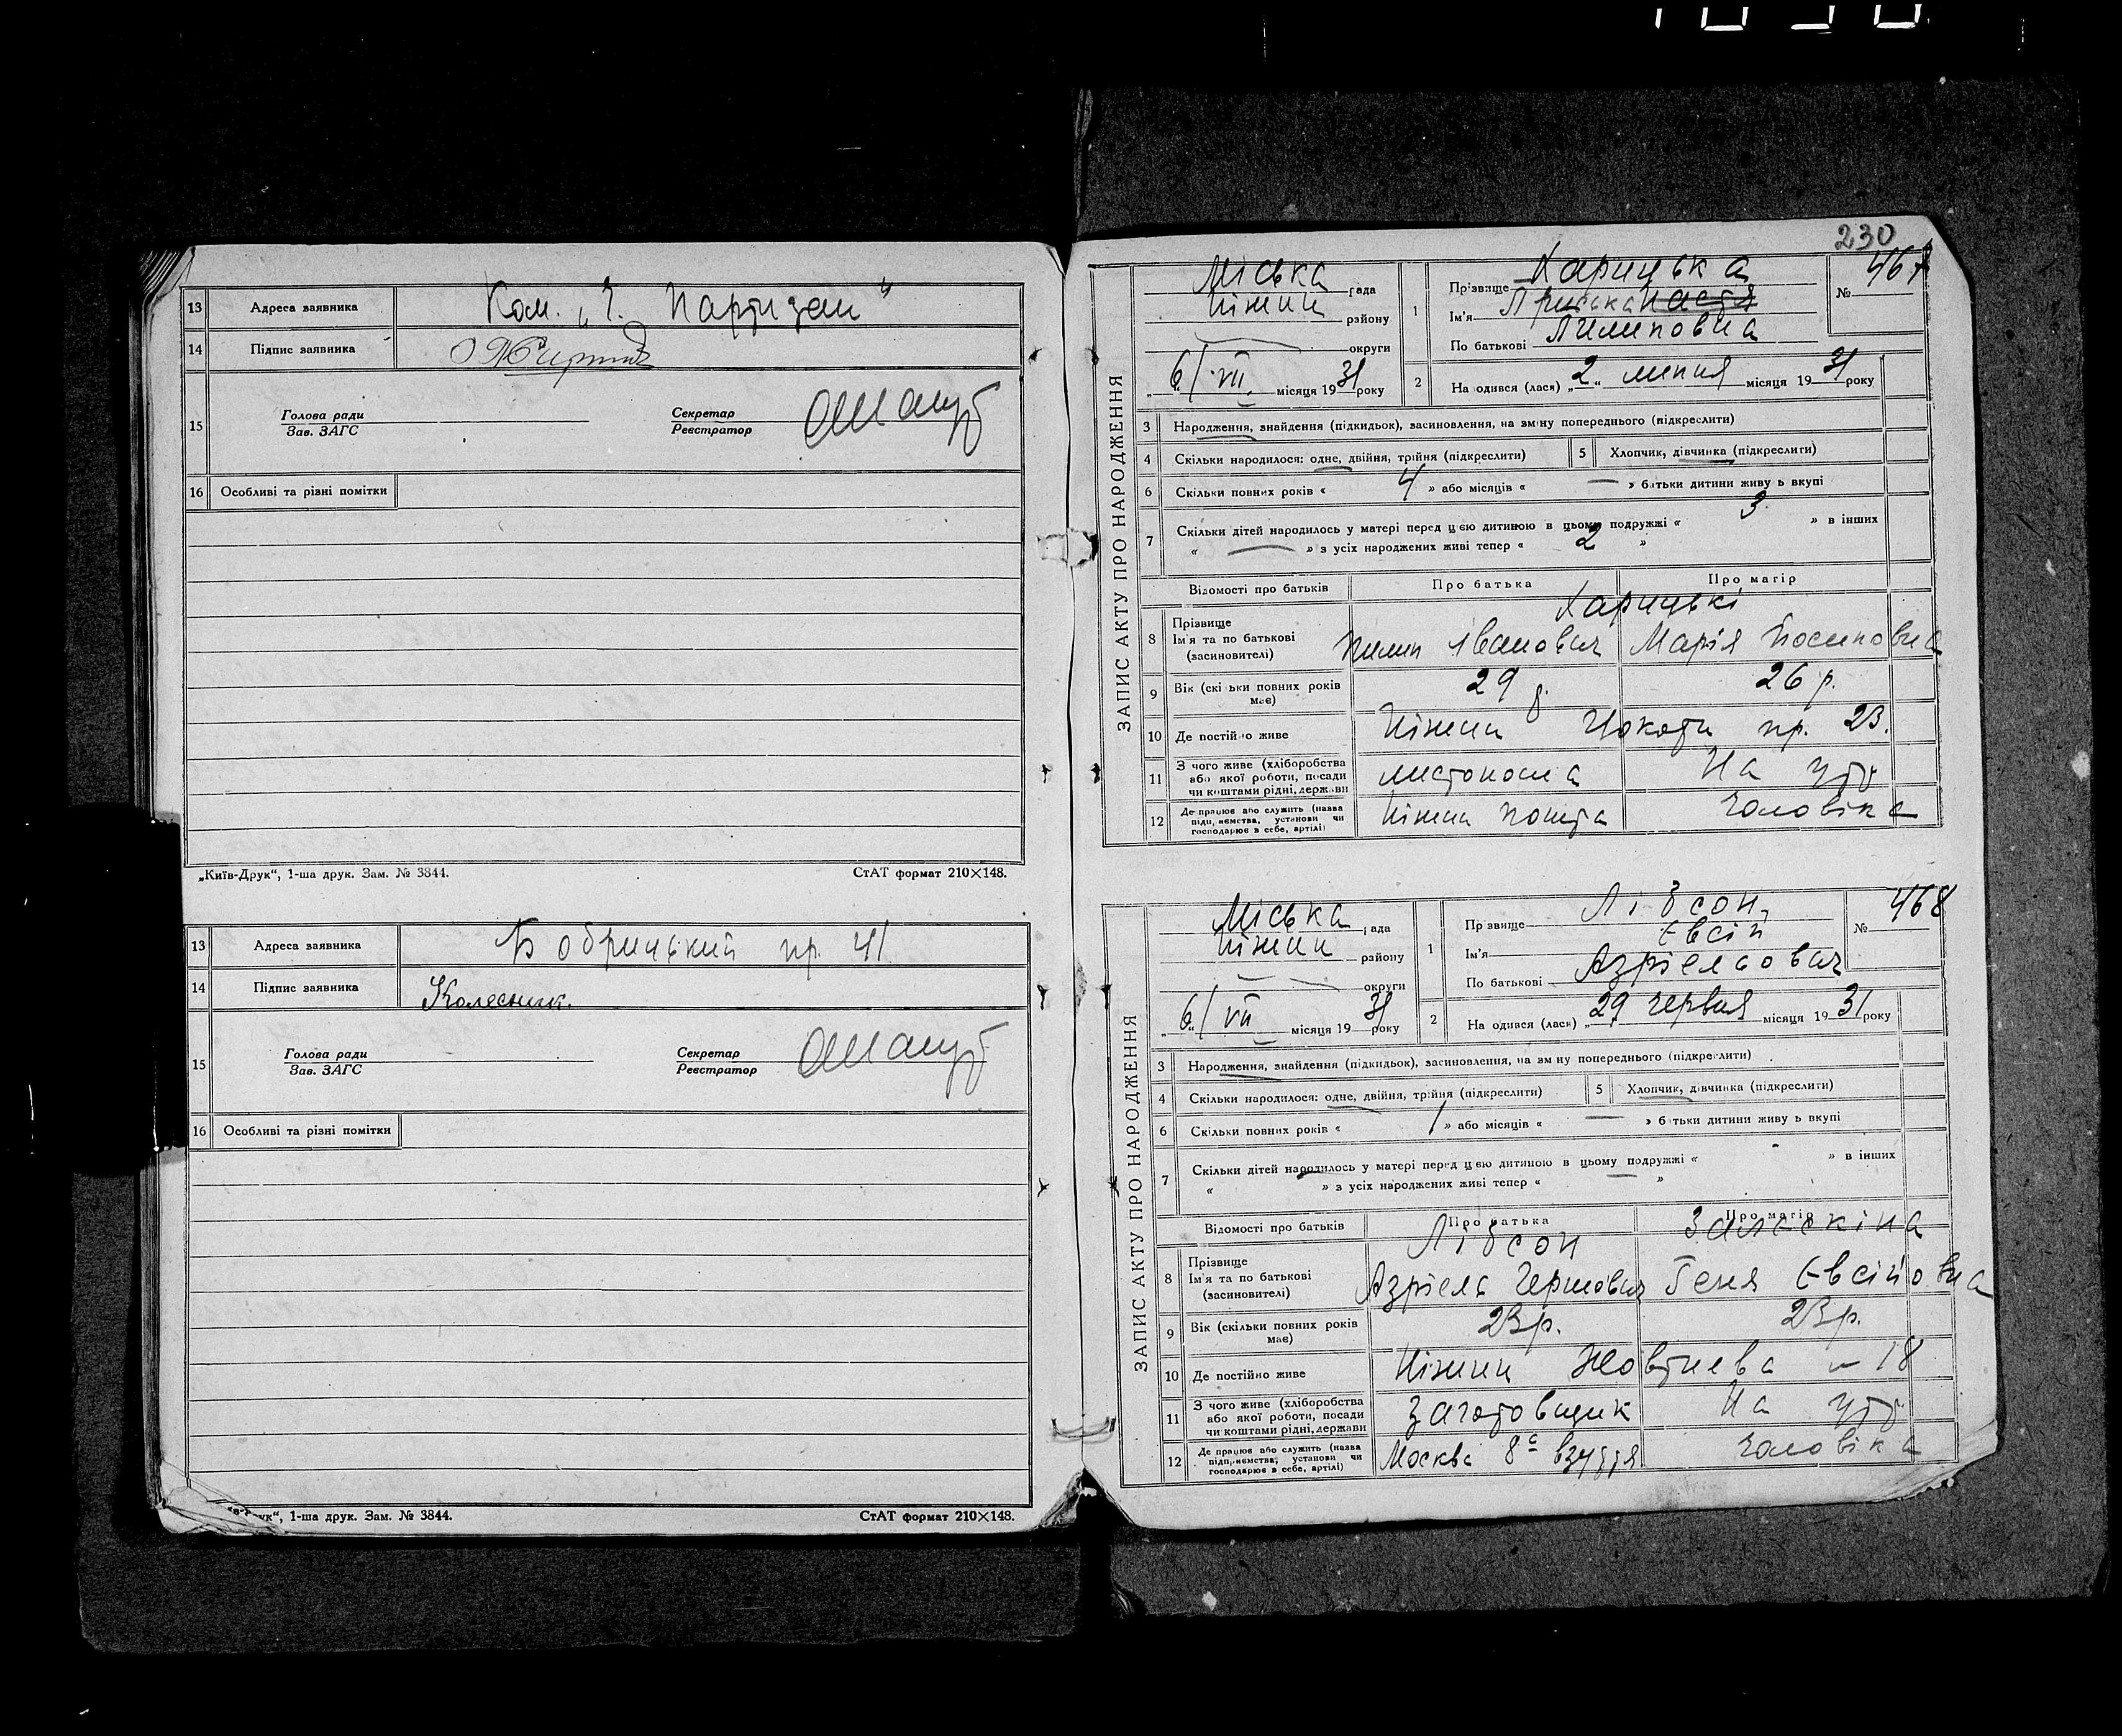 13 Адреса заявника Ком. „Ч. Партизан"
14 Підпис заявника
15 Голова ради
Зав. ЗАГС
Секретар
Реєстратор
16 Особливі та різні помітки
„Київ-Друк“, 1-ша друк. Зам. № 3844. СтАТ формат 210×148.
13 Адреса заявника Бобрицький пр. 41
14 Підпис заявника Колесник.
15 Голова ради
Зав. ЗАГС
Секретар
Реєстратор
16 Особливі та різні помітки
1-ша друк. Зам. № 3844. СтАТ формат 210×148.
230
ЗАПИС АКТУ ПРО НАРОДЖЕННЯ
Міська рада
Ніжин району
округи
„6/VII місяця 1931 року
1 Прізвище Харицька
Ім'я Приська Настя
По батькові Пилиповна
№ 467
2 На одився (лася) „2“ липня місяця 1931 року
3 Народження, знайдення (підкидьок), засиновлення, на зміну попереднього (підкреслити)
4 Скільки народилося: одне, двійня, трійня (підкреслити) 5 Хлопчик, дівчинка (підкреслити)
6 Скільки повних років « 4 » або місяців « — » батьки дитини живу ь вкупі
7 Скільки дітей народилось у матері перед цією дитиною в цьому подружжі « 3 » в інших
« — » з усіх народжених живі тепер « 2 »
Відомості про батьків Про батька Про матір
8 Прізвище
Ім'я та по батькові
(засиновителі)
Харицькі
Пилип Іванович Марія Йосиповна
9 Вік (скі ьки повних років має) 29 р. 26 р.
10 Де постійно живе Ніжин пр. 23.
11 З чого живе (хліборобства або якої роботи, посади чи коштами рідні, держави листоноша На утр
12 Де працює або служить (назва підприємства, установи чи господарює в себе, артілі) Ніжин пошта чоловіка
ЗАПИС АКТУ ПРО НАРОДЖЕННЯ
Міська рада
Ніжин району
округи
„6/VII місяця 1931 року
1 Прізвище Лібсон,
Ім'я Євсій
По батькові Азрієльович
№ 468
2 На одився (лася) „29 червня місяця 1931 року
3 Народження, знайдення (підкидьок), засиновлення, на зміну попереднього (підкреслити)
4 Скільки народилося: одне, двійня, трійня (підкреслити) 5 Хлопчик, дівчинка (підкреслити)
6 Скільки повних років « 1 » або місяців « — » батьки дитини живу ь вкупі
7 Скільки дітей народилось у матері перед цією дитиною в цьому подружжі « » в інших
« » з усіх народжених живі тепер « »
Відомості про батьків Про батька Про матір
8 Прізвище
Ім'я та по батькові
(засиновителі)
Лібсон
Азрієль Гершович Геня Євсійовна
9 Вік (скільки повних років має) 23 р. 23 р.
10 Де постійно живе Ніжин Жовтнева 18
11 З чого живе (хліборобства або якої роботи, посади чи коштами рідні, держави Заготовщик На утр
12 Де працює або служить (назва підприємства, установи чи господарює в себе, артілі) Москва 8а взуття чоловіка